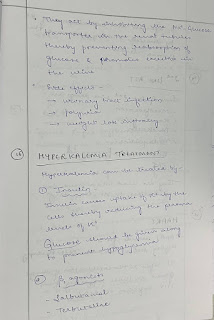 • They act by inhibiting the Na+-Glucose
transporter in the renal tubule
thereby preventing reabsorption of
glucose & promotes excretion in
the urine
• Side effects -
→ urinary tract infection
→ Polyuria
→ weight loss
HYPERKALEMIA TREATMENT
Hyperkalemia can be treated by:-
① Insulin
Insulin causes uptake of K+ by the
cells thereby reducing the plasma
levels of K+.
Glucose should be given along
to prevent hypoglycemia
② β2 agonists
- Salbutamol
- Terbutaline